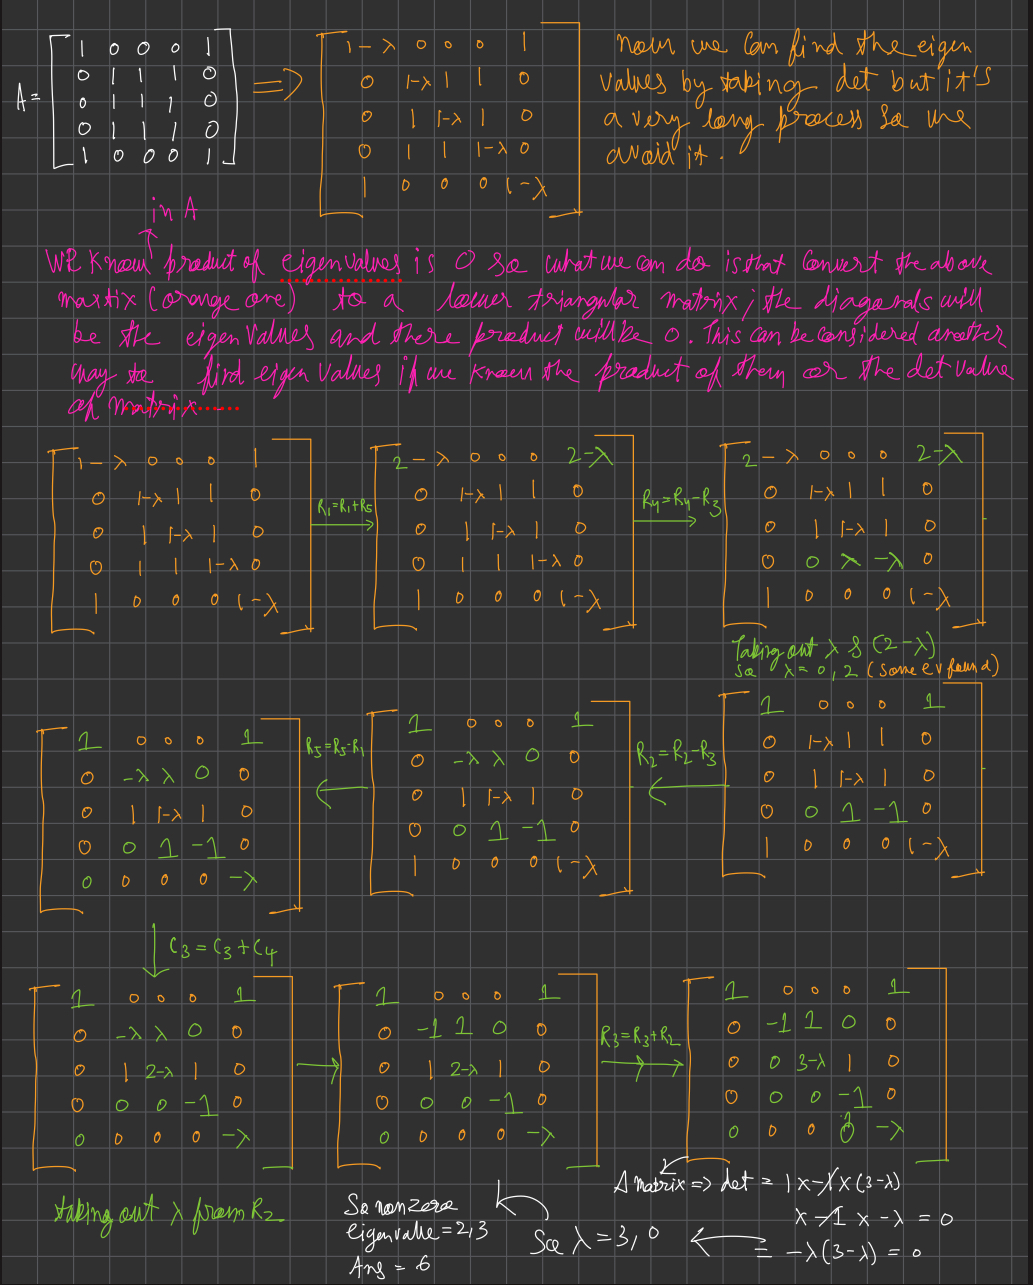 A = [ 1 0 0 0 1 ⇒ [ 1-λ 0 0 0 1 Now we can find the eigen
0 1 1 1 0 0 1-λ 1 1 0 values by taking det but it's
0 1 1 1 0 0 1 1-λ 1 0 a very long process so we
0 1 1 1 0 0 1 1 1-λ 0 avoid it.
1 0 0 0 1 ] 1 0 0 0 1-λ ]
in A
We know product of eigenvalues is 0 so what we can do is that convert the above
matrix (orange one) to a lower triangular matrix, the diagonals will
be the eigen values and there product will be 0. This can be considered another
way to find eigen values if we know the product of them or the det value
of matrix
[ 1-λ 0 0 0 1
0 1-λ 1 1 0
0 1 1-λ 1 0
0 1 1 1-λ 0
1 0 0 0 1-λ ]
R1=R1+R5
[ 2-λ 0 0 0 2-λ
0 1-λ 1 1 0
0 1 1-λ 1 0
0 1 1 1-λ 0
1 0 0 0 1-λ ]
R4=R4-R3
[ 2-λ 0 0 0 2-λ
0 1-λ 1 1 0
0 1 1-λ 1 0
0 0 λ -λ 0
1 0 0 0 1-λ ]
Taking out λ & (2-λ)
so λ = 0, 2 (some ev found)
[ 1 0 0 0 1
0 1-λ 1 1 0
0 1 1-λ 1 0
0 0 1 -1 0
1 0 0 0 1-λ ]
R2=R2-R3
[ 1 0 0 0 1
0 -λ λ 0 0
0 1 1-λ 1 0
0 0 1 -1 0
1 0 0 0 1-λ ]
R5=R5-R1
[ 1 0 0 0 1
0 -λ λ 0 0
0 1 1-λ 1 0
0 0 1 -1 0
0 0 0 0 -λ ]
C3=C3+C4
[ 1 0 0 0 1
0 -λ λ 0 0
0 1 2-λ 1 0
0 0 0 -1 0
0 0 0 0 -λ ]
taking out λ from R2
[ 1 0 0 0 1
0 -1 1 0 0
0 1 2-λ 1 0
0 0 0 -1 0
0 0 0 0 -λ ]
R3=R3+R2
[ 1 0 0 0 1
0 -1 1 0 0
0 0 3-λ 1 0
0 0 0 -1 0
0 0 0 0 -λ ]
A matrix ⇒ det = 1 x -1 x (3-λ)
x -1 x -λ = 0
= -λ(3-λ) = 0
So λ = 3, 0
So nonzero
eigenvalue = 2, 3
Ans = 6